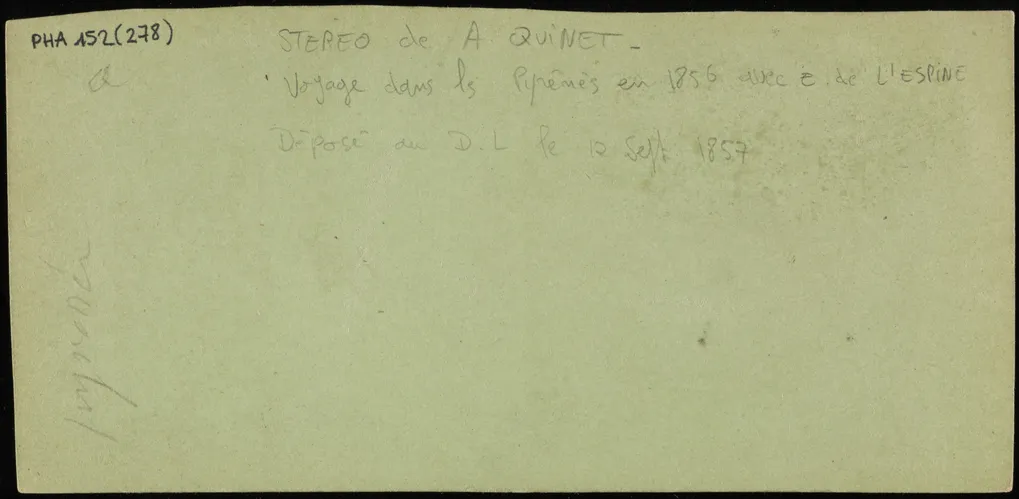 PHA 152(278)
STEREO de A QUINET -
Voyage dans ls Pyrénés en 1856 avec E. de L'ESPINE
Déposé au D.L le 12 Sept 1857